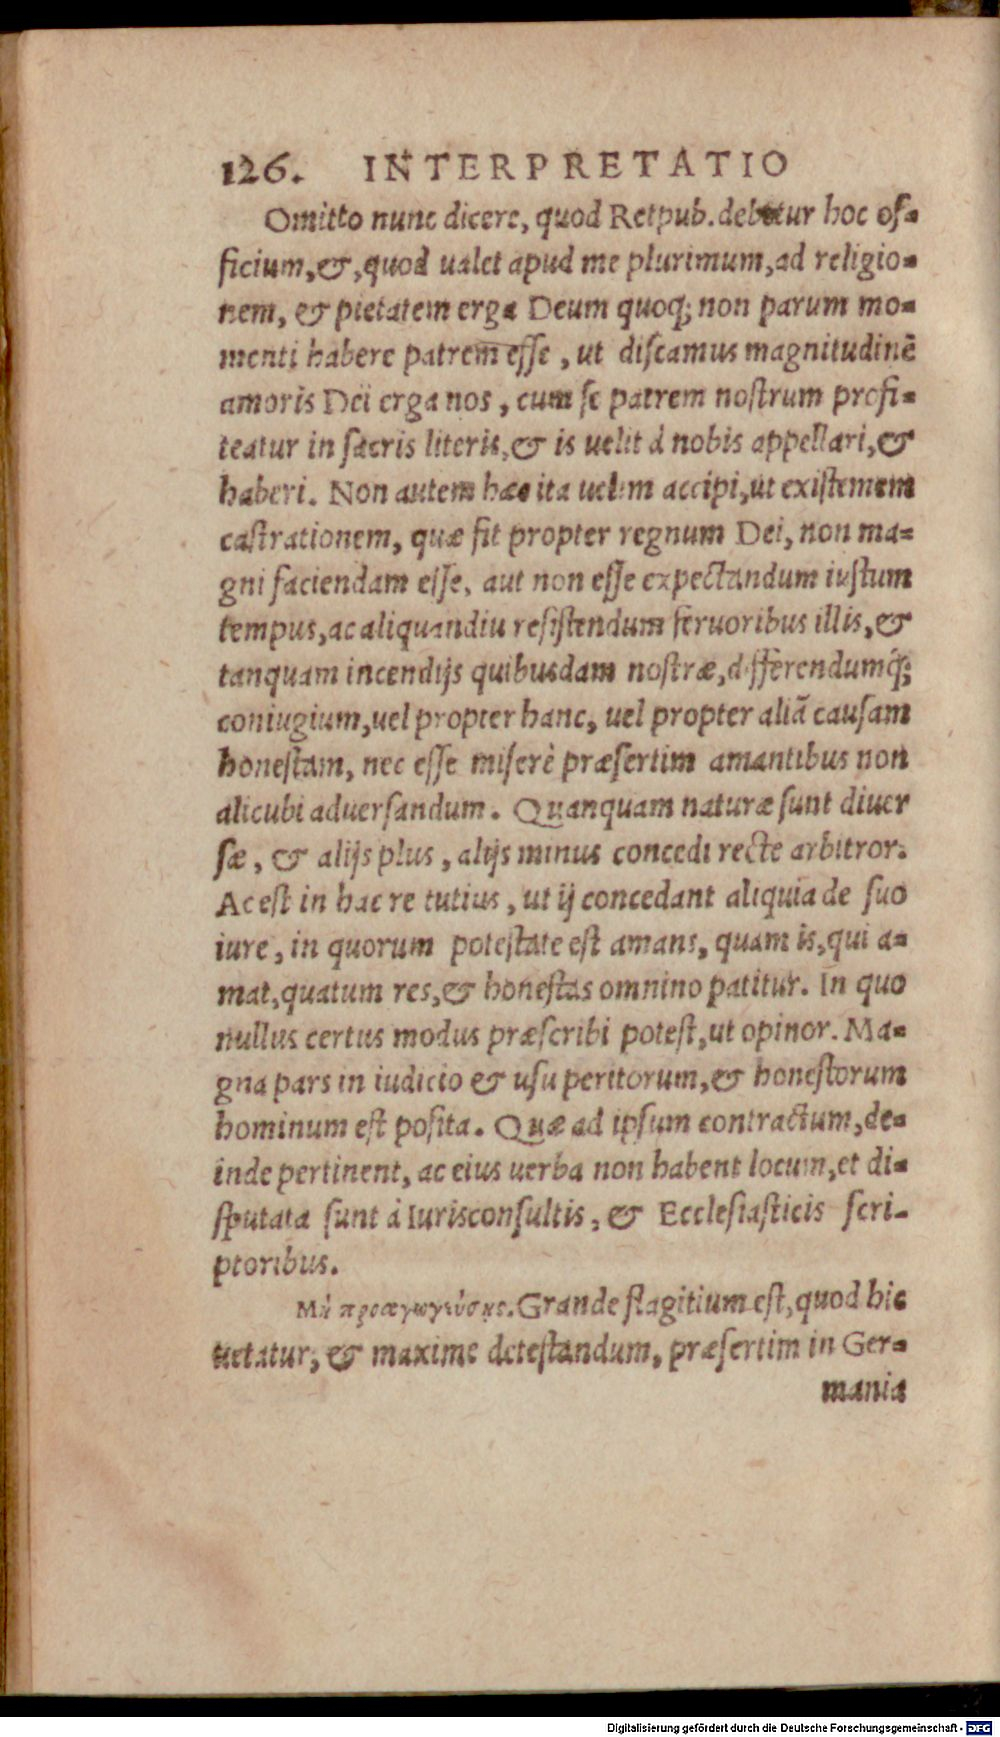 126. INTERPRETATIO
Omitto nunc dicere, quod Reipub. debetur hoc of-
ficium, &, quod ualet apud me plurimum, ad religio-
nem, & pietatem erga Deum quoq; non parum mo-
menti habere patrem esse, ut discamus magnitudinē
amoris Dei erga nos, cum se patrem nostrum profi-
teatur in sacris literis, & is uelit à nobis appellari, &
haberi. Non autem hæc ita uelim accipi, ut existemem
castrationem, quæ fit propter regnum Dei, non ma-
gni faciendam esse, aut non esse expectandum iustum
tempus, ac aliquandiu resistendum feruoribus illis, &
tanquam incendijs quibusdam nostræ, differendumq́;
coniugium, uel propter hanc, uel propter aliā causam
honestam, nec esse miserè præsertim amantibus non
alicubi aduersandum. Quanquam naturæ sunt diuer
sæ, & alijs plus, alijs minus concedi recte arbitror.
Ac est in hac re tutius, ut ij concedant aliquia de suo
iure, in quorum potestate est amans, quam is, qui a-
mat, quatum res, & honestas omnino patitur. In quo
nullus certus modus præscribi potest, ut opinor. Ma-
gna pars in iudicio & usu peritorum, & honestorum
hominum est posita. Quæ ad ipsum contractum, de-
inde pertinent, ac eius uerba non habent locum, et di-
sputata sunt à Iurisconsultis, & Ecclesiasticis scri-
ptoribus.
Μὴ προαγωγεύσῃς. Grande flagitium est, quod hic
uetatur, & maxime detestandum, præsertim in Ger-
mania
Digitalisierung gefördert durch die Deutsche Forschungsgemeinschaft - DFG